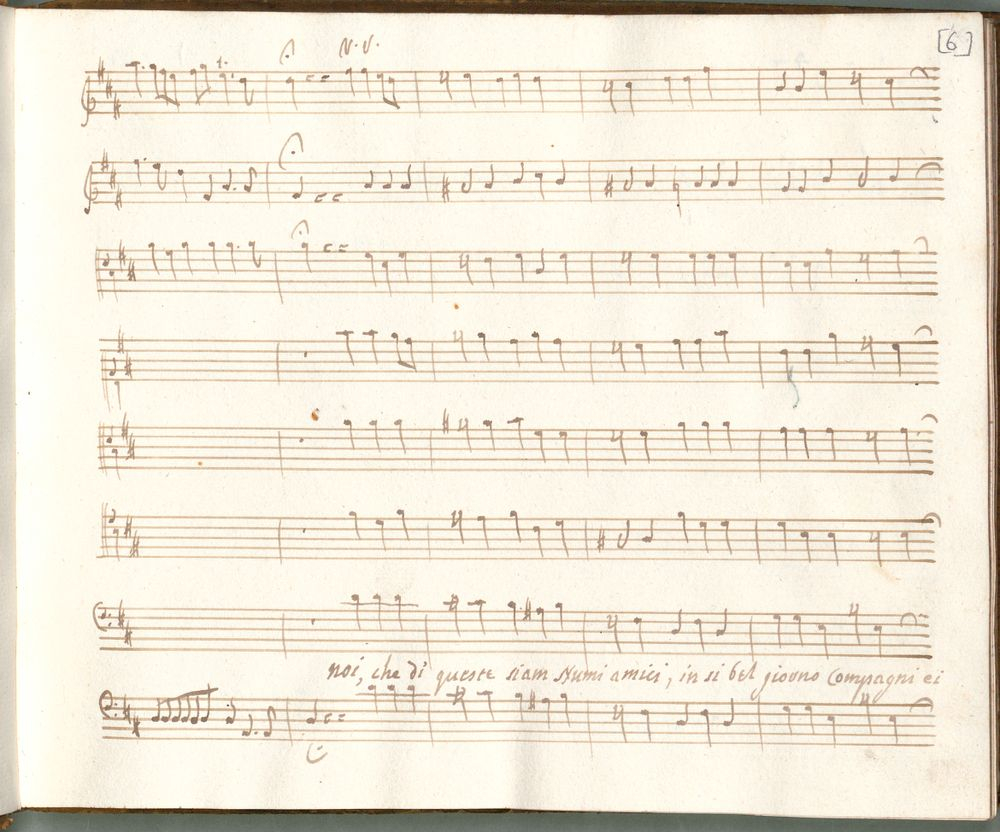 [6]
V. V.
noi, che di queste siam Numi amici, in si bel giorno Compagni ei